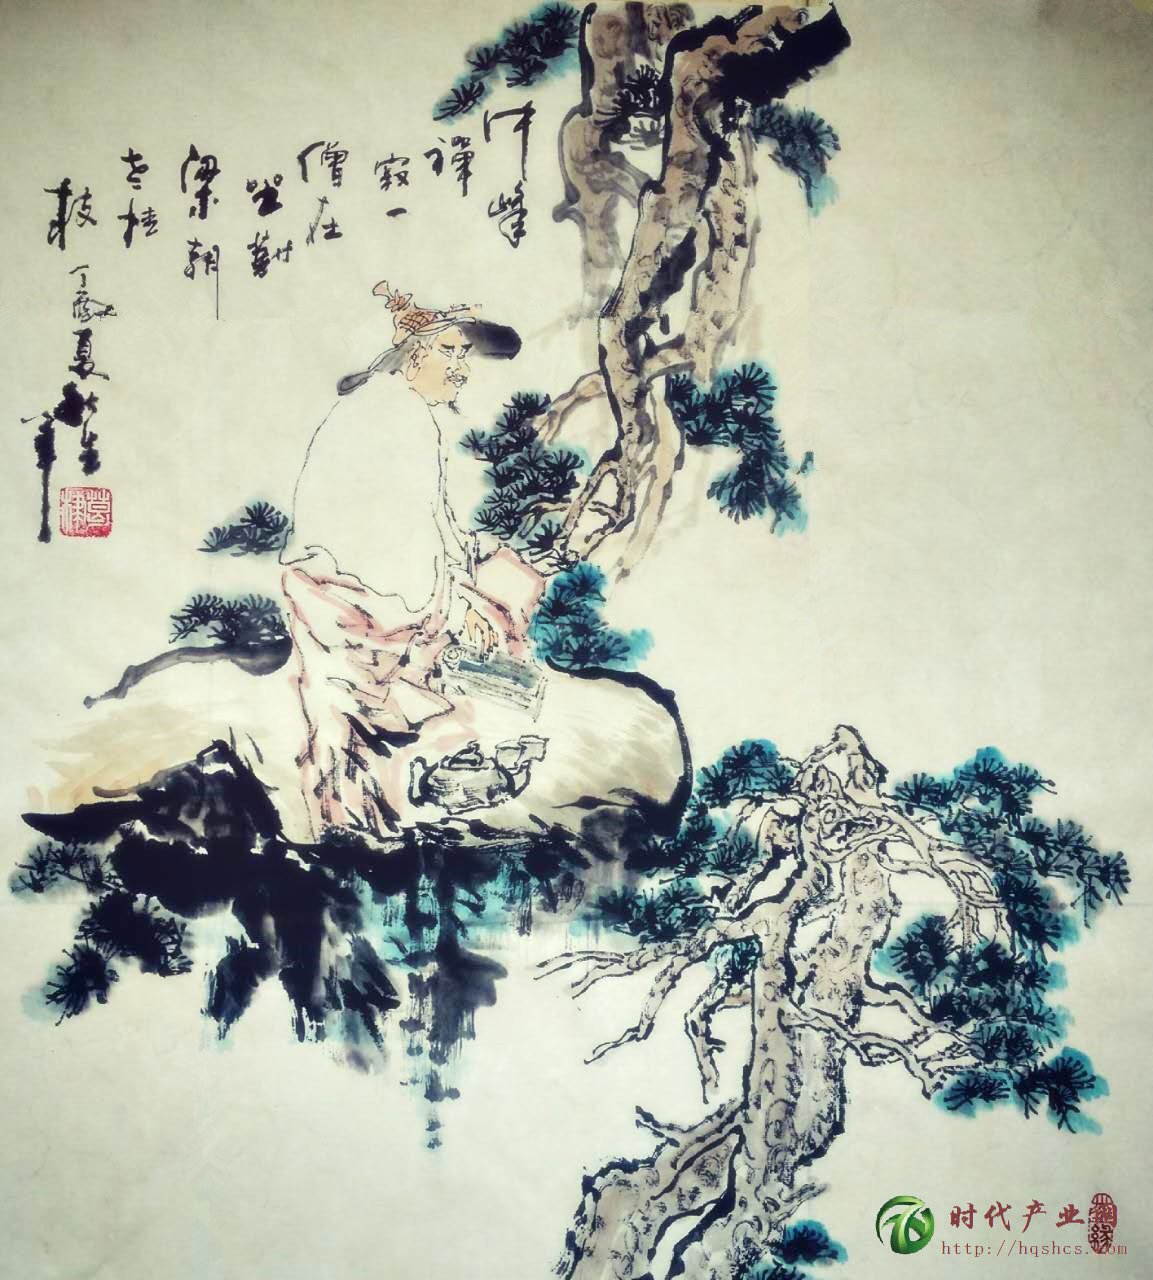 中峰
禪
寂一
僧在
坐對
梁朝
老桂
枝 丁 夏
时代产业
http://hqshcs.com